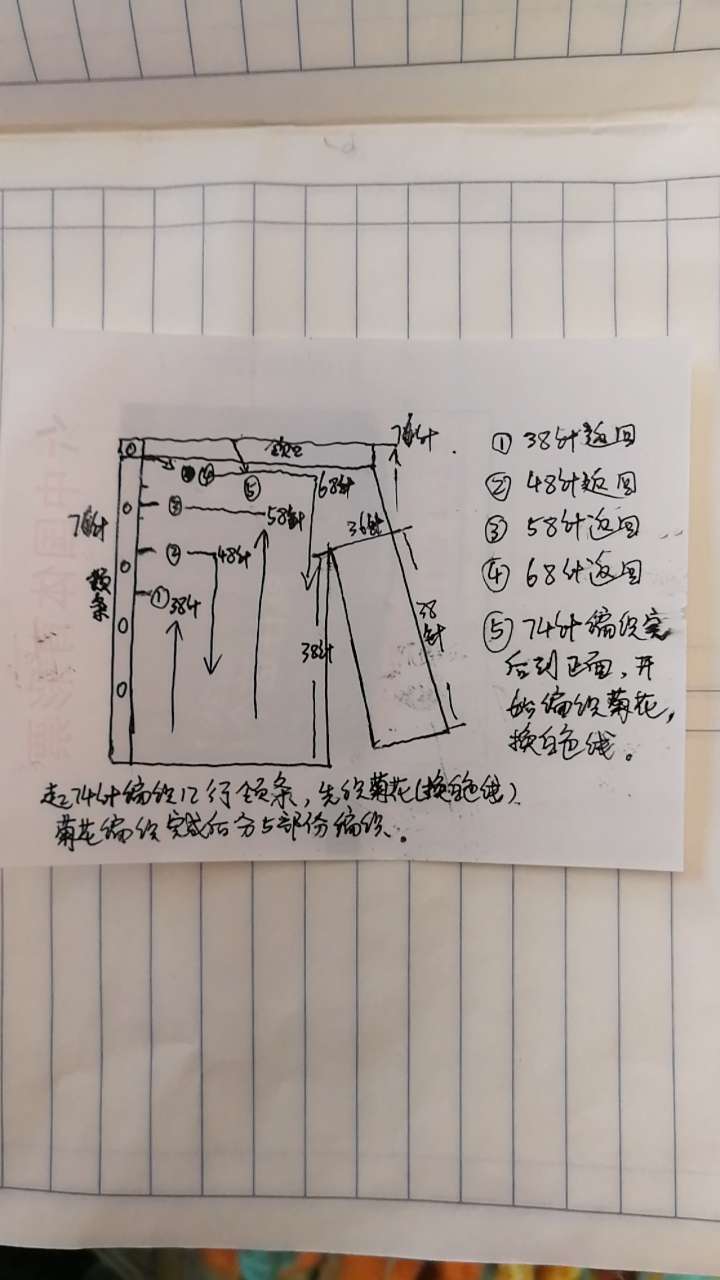 领口
74针
④
68针
⑤
③
58针
36针
74针
②
48针
领条
①
38针
38针
38针
① 38针返回
② 48针返回
③ 58针返回
④ 68针返回
⑤ 74针编织完
后到正面,开
始编织菊花,
换白色线。
起74针编织12行领条,先织菊花(换白色线)
菊花编织完成后分5部份编织。